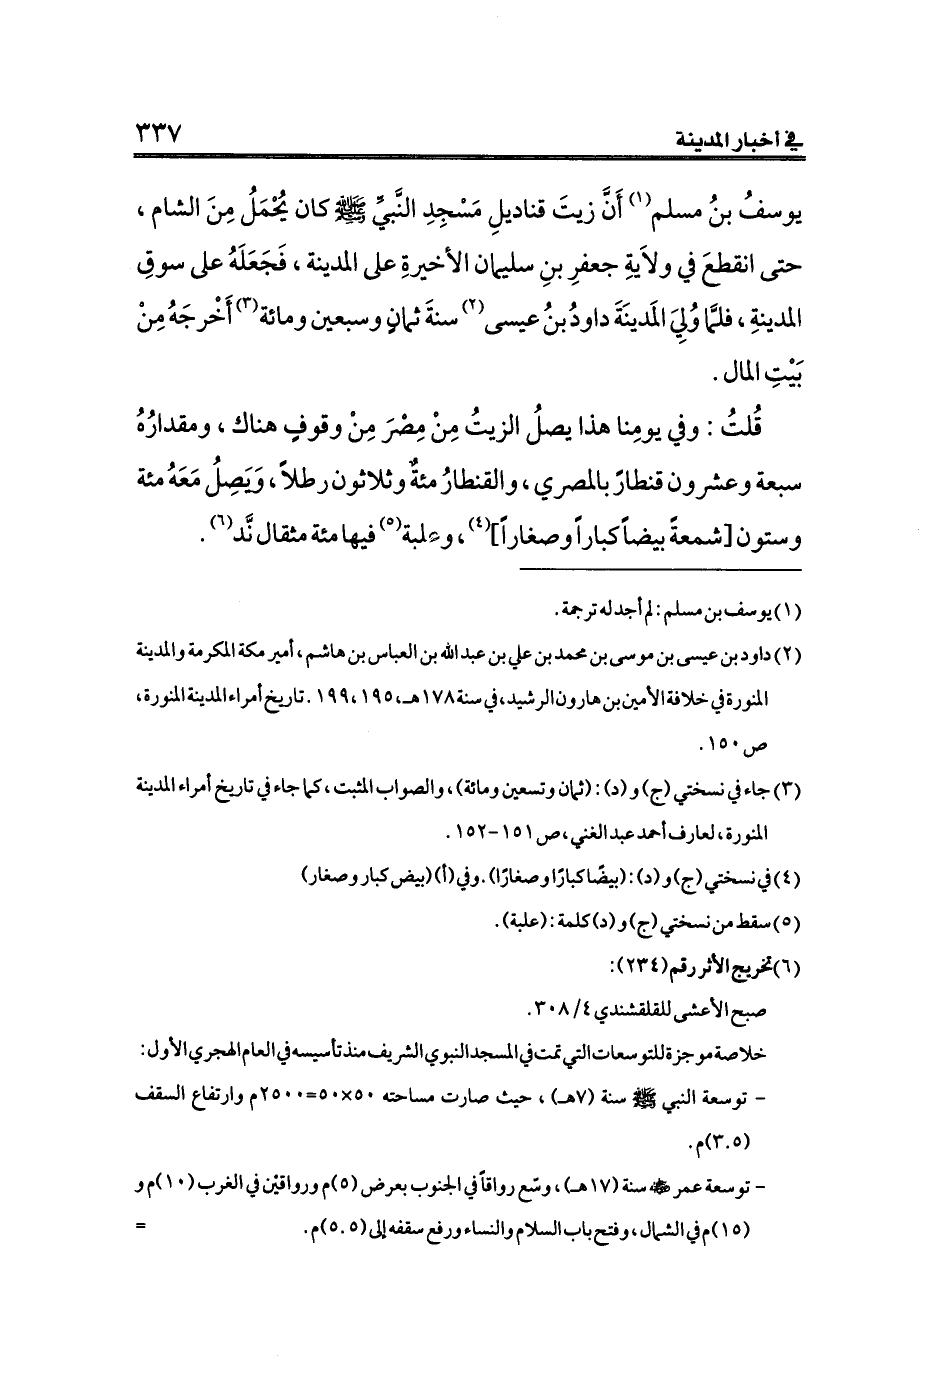 في أخبار المدينة ٣٣٧
يوسفُ بنُ مسلم(١) أَنَّ زيتَ قناديلِ مَسْجِدِ النَّبِيِّ ﷺ كان يُحْمَلُ مِنَ الشام ،
حتى انقطعَ في ولاَيةِ جعفرِ بنِ سليمان الأخيرةِ على المدينة ، فَجَعَلَهُ على سوقِ
المدينةِ ، فلمَّا وُلِيَ المَدينَةَ داودُ بنُ عيسى(٢) سنةَ ثمانٍ وسبعين ومائة(٣) أَخْرجَهُ مِنْ
بَيْتِ المال .
قُلتُ : وفي يومِنا هذا يصلُ الزيتُ مِنْ مِصْرَ مِنْ وقوفٍ هناك ، ومقدارُهُ
سبعة وعشرون قنطارً بالمصري ، والقنطارُ مئةٌ وثلاثون رطلاً ، وَيَصِلُ مَعَهُ مئة
وستون [شمعةً بيضاً كباراً وصغاراً](٤) ، وعلبة(٥) فيها مئة مثقال نَّد(٦) .
(١) يوسف بن مسلم : لم أجد له ترجمة .
(٢) داود بن عيسى بن موسى بن محمد بن علي بن عبد الله بن العباس بن هاشم ، أمير مكة المكرمة والمدينة
المنورة في خلافة الأمين بن هارون الرشيد ، في سنة ١٧٨هـ ، ١٩٥ ، ١٩٩ . تاريخ أمراء المدينة المنورة ،
ص ١٥٠ .
(٣) جاء في نسختي (ج) و (د) : (ثمان وتسعين ومائة) ، والصواب المثبت ، كما جاء في تاريخ أمراء المدينة
المنورة ، لعارف أحمد عبد الغني ، ص ١٥١-١٥٢ .
(٤) في نسختي (ج) و (د) : (بيضًا كبارًا وصغارًا) . وفي (أ) (بيض كبار وصغار)
(٥) سقط من نسختي (ج) و (د) كلمة : (علبة) .
(٦) تخريج الأثر رقم (٢٣٤) :
صبح الأعشى للقلقشندي ٤/ ٣٠٨ .
خلاصة موجزة للتوسعات التي تمت في المسجد النبوي الشريف منذ تأسيسه في العام الهجري الأول :
- توسعة النبي ﷺ سنة (٧هـ) ، حيث صارت مساحته ٥٠×٥٠=٢٥٠٠م وارتفاع السقف
(٣.٥)م .
- توسعة عمر ﵁ سنة (١٧هـ) ، وسّع رواقاً في الجنوب بعرض (٥)م ورواقيْن في الغرب (١٠)م و
(١٥)م في الشمال ، وفتح باب السلام والنساء ورفع سقفه إلى (٥.٥)م . =